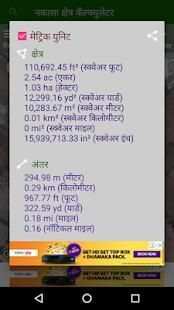 नकाशा क्षेत्र कॅल्क्युलेटर
मेट्रिक युनिट
क्षेत्र
110,692.45 ft² (स्क्वेअर फूट)
2.54 ac (एकर)
1.03 ha (हेक्टर)
12,299.16 yd² (स्क्वेअर यार्ड)
10,283.67 m² (स्क्वेअर मीटर)
0.01 km² (स्क्वेअर किलोमीटर)
0.00 mi² (स्क्वेअर माइल)
15,939,713.36 in² (स्क्वेअर इंच)
अंतर
294.98 m (मीटर)
0.29 km (किलोमीटर)
967.77 ft (फूट)
322.59 yd (यार्ड)
0.18 mi (माइल)
0.16 (नॉटिकल माइल)
GET HD SET TOP BOX
+ DHAMAKA PACK.